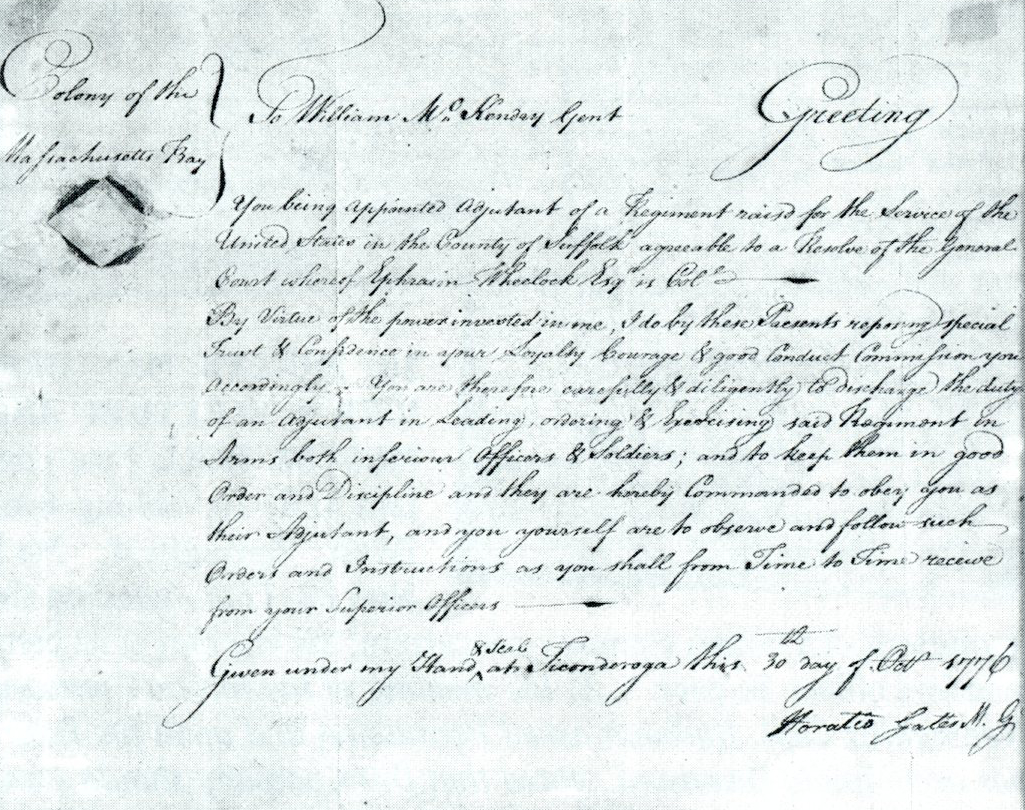 Colony of the
Massachusetts Bay
To William Mc. Kendry Gent Greeting
You being appointed Adjutant of a Regiment raisd for the Service of the
United States in the County of Suffolk agreeable to a Resolve of the General
Court whereof Ephraim Wheelock Esqr is Coll
By Virtue of the power invested in me, I do by these Presents reposing special
Trust & Confidence in your Loyalty Courage & good Conduct Commission you
accordingly. – You are therefore carefully & diligently to discharge the duty
of an Adjutant in Leading, ordering & Exercising said Regiment in
Arms both inferiour Officers & Soldiers; and to keep them in good
Order and Discipline and they are hereby Commanded to obey you as
their Adjutant, and you yourself are to observe and follow such
Orders and Instructions as you shall from Time to Time receive
from your Superior Officers
Given under my Hand & Seal at Ticonderoga this 30th day of Octr 1776
Horatio Gates M. G